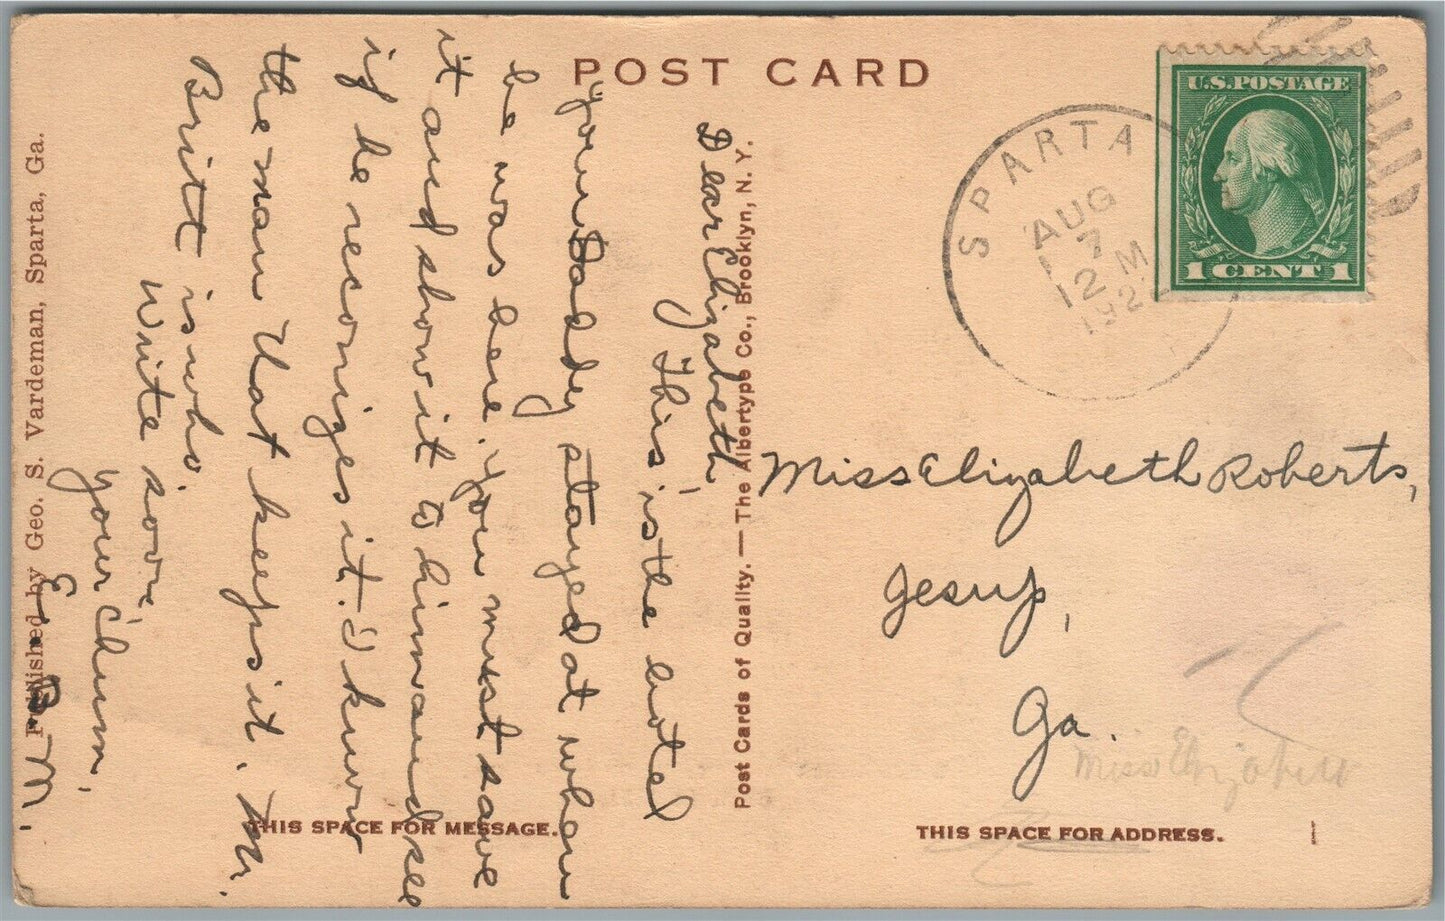 POST CARD
U.S. POSTAGE
1 CENT 1
SPARTA
AUG
7
12 M
192
Dear Elizabeth,
This is the hotel
your Daddy stayed at when
he was here. you must save
it and show it to him and see
if he reconizes it. I know
the man that keeps it. Mr.
Britt is who.
Write soon,
your chum,
E. B. M.
Miss Elizabeth Roberts,
Jesup,
Ga.
Miss Elizabeth
THIS SPACE FOR MESSAGE.
THIS SPACE FOR ADDRESS.
Post Cards of Quality. — The Albertype Co., Brooklyn, N. Y.
Published by Geo. S. Vardeman, Sparta, Ga.